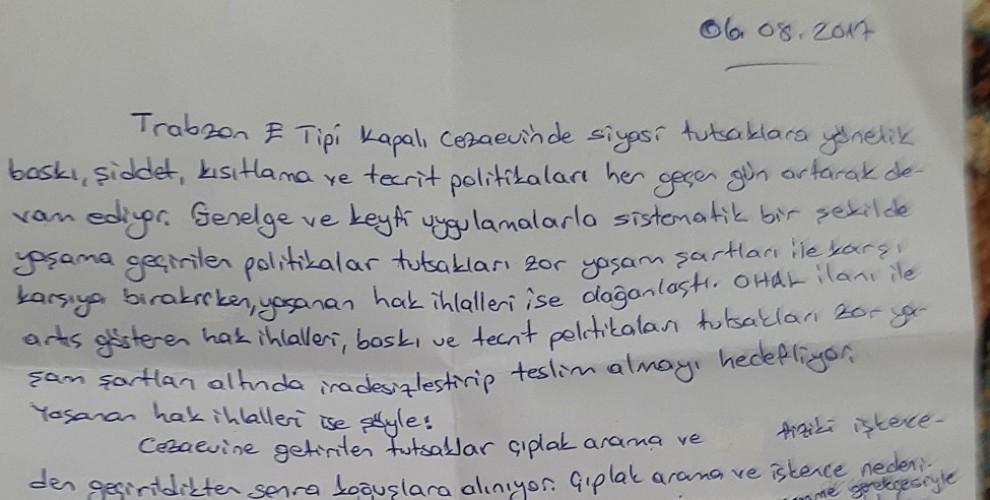 06.08.2017
Trabzon E Tipi Kapalı Cezaevinde siyasi tutsaklara yönelik
baskı, şiddet, kısıtlama ve tecrit politikaları her geçen gün artarak de-
vam ediyor. Genelge ve keyfi uygulamalarla sistematik bir şekilde
yaşama geçirilen politikalar tutsakları zor yaşam şartları ile karşı
karşıya bırakırken, yaşanan hak ihlalleri ise dağanlaştı. OHAL ilanı ile
artış gösteren hak ihlalleri, baskı ve tecrit politikaları tutsakları zor ya-
şam şartları altında iradesizleştirip teslim almayı hedefliyor.
Yaşanan hak ihlalleri ise şöyle:
Cezaevine getirilen tutsaklar çıplak arama ve fiziki işkence-
den geçirildikten sonra koğuşlara alınıyor. Çıplak arama ve işkence nedeni-
gerekçesiyle